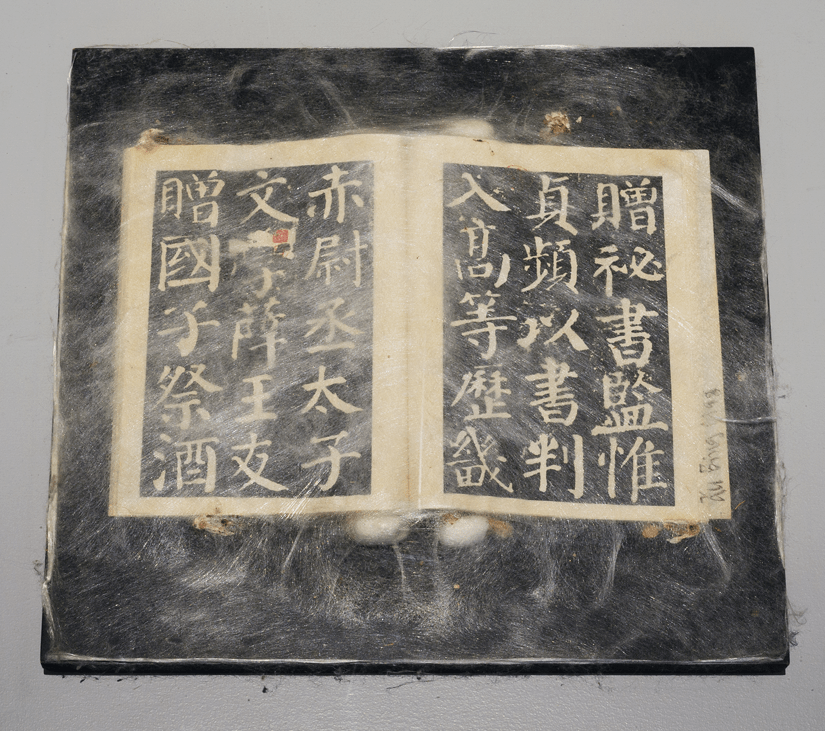 贈祕書監惟
貞頻以書判
入高等歷畿
赤尉丞太子
文學薛王友
贈國子祭酒